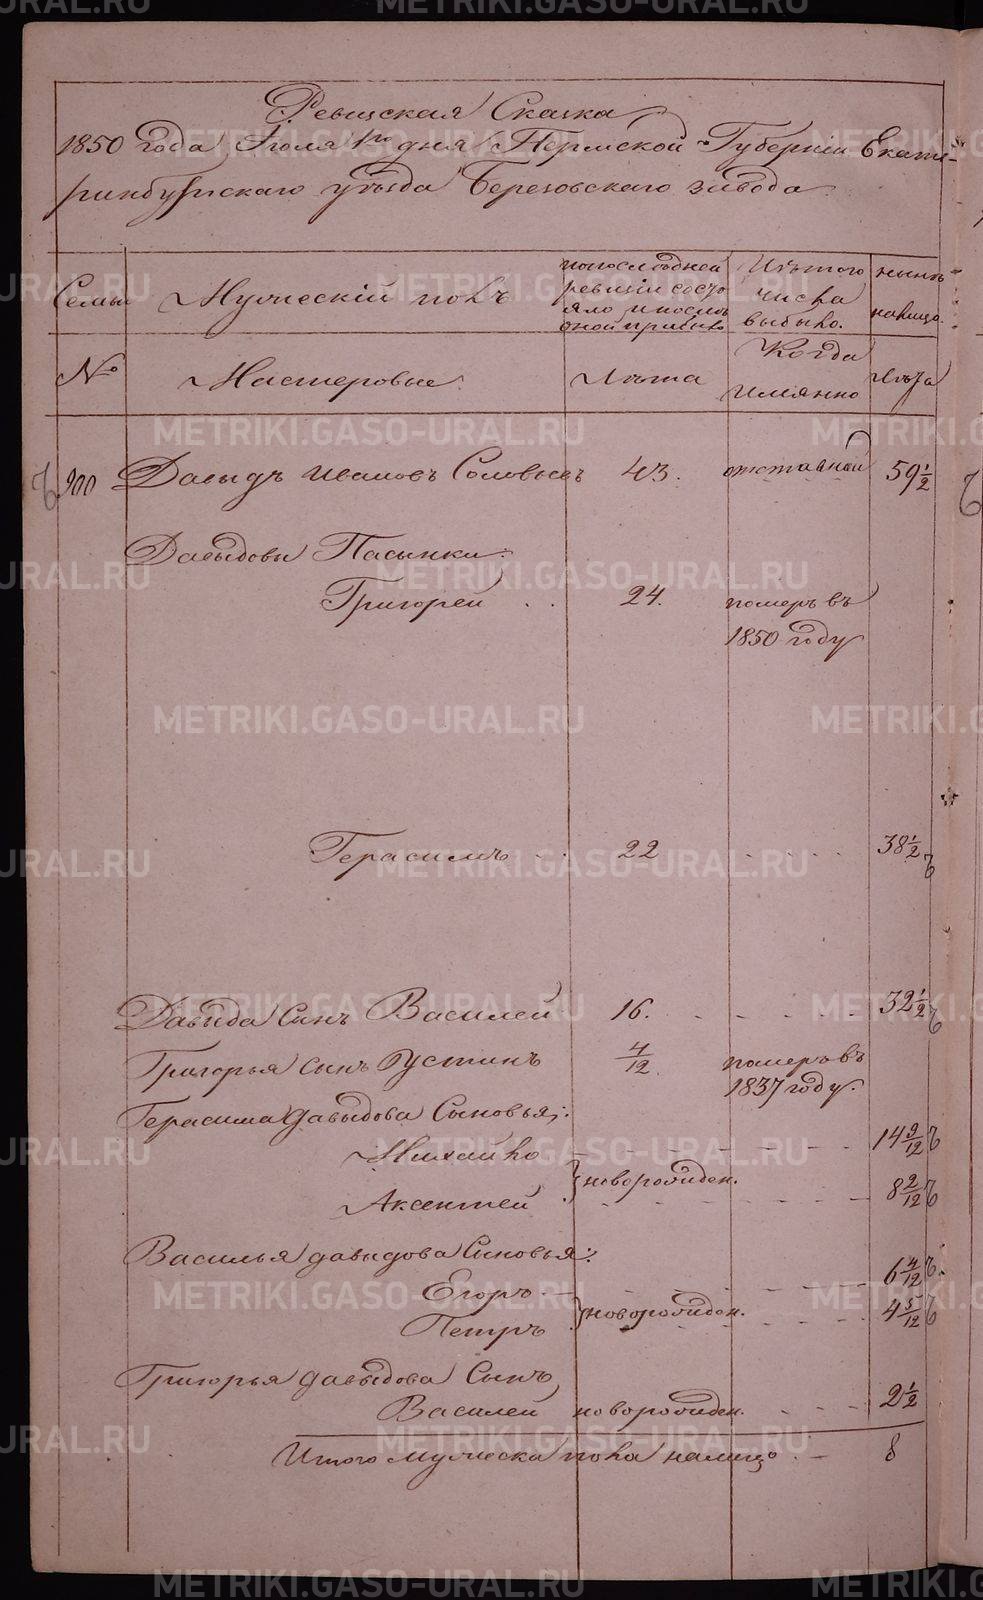 Ревизская Сказка
1850 года Іюля 1го дня Пермской Губерніи Екате-
ринбургскаго уѣзда Березовскаго завода
Семьи
Мужескій полъ
по последней
ревизіи состо
яло и после
оной прибыло
Изъ того
числа
выбыло.
нынѣ
налицо
№
Мастеровые
Лѣта
Когда
имянно
Лѣта
900 Давыдъ Ивановъ Соловьевъ 43. отставной 59 1/2
Давыдовы Пасынки:
Григорей . . 24. померъ въ
1850 году
Герасимъ . . 22 38 1/2
Давыда Сынъ Василей 16. 32 1/2
Григорья сынъ Устинъ 4/12 померъ въ
1837 году.
Герасима Давыдова Сыновья:
Михайло 14 9/12
новорожден.
Аксентей 8 2/12
Василья Давыдова Сыновья:
Егоръ 6 4/12
новорожден.
Петръ 4 5/12
Григорья Давыдова Сынъ
Василей новорожден. 2 1/2
Итого мужеска пола налицо 8
METRIKI.GASO-URAL.RU